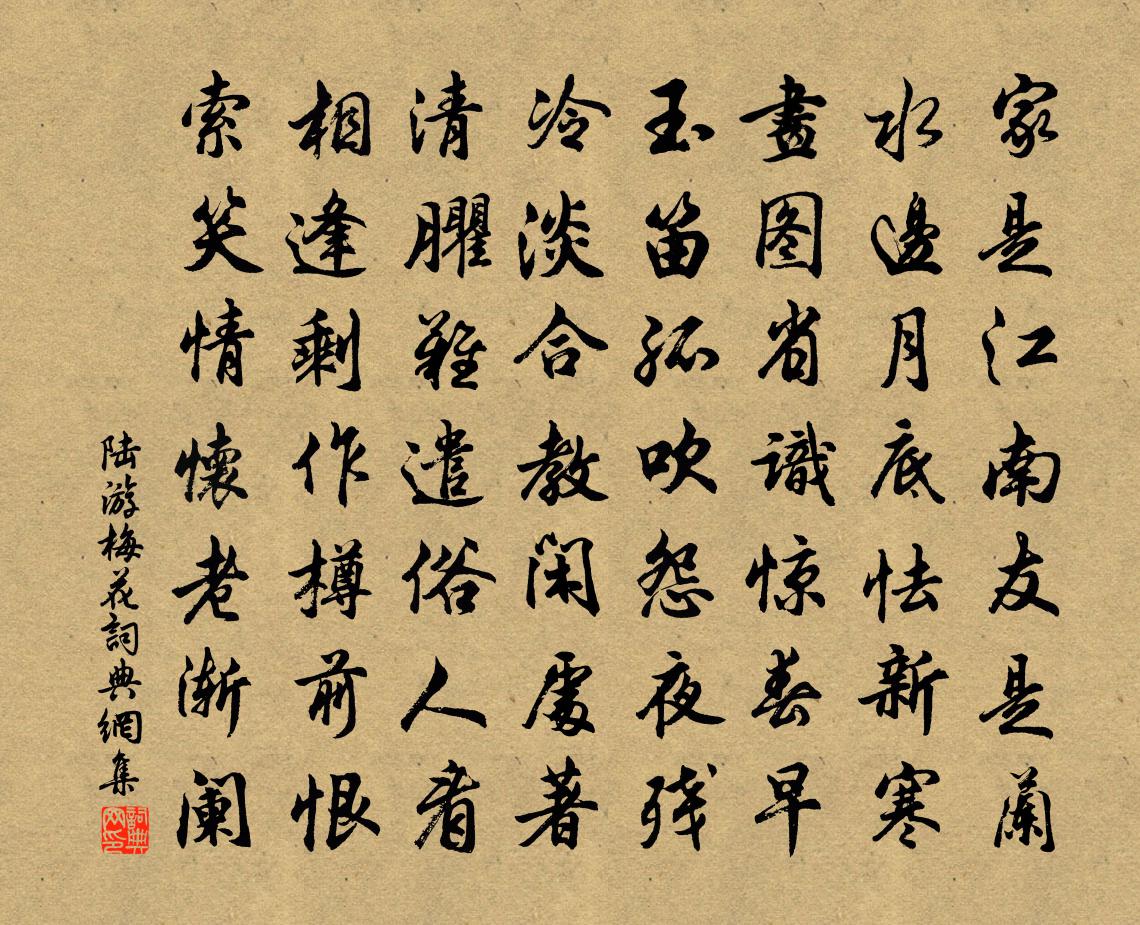 家是江南友是蘭
水邊月底怯新寒
畫图省識惊春早
玉笛孤吹怨夜残
冷淡合教閑處著
清臞難遣俗人看
相逢剩作樽前恨
索笑情懷老渐阑
陆游梅花詞典網集
詞典网印